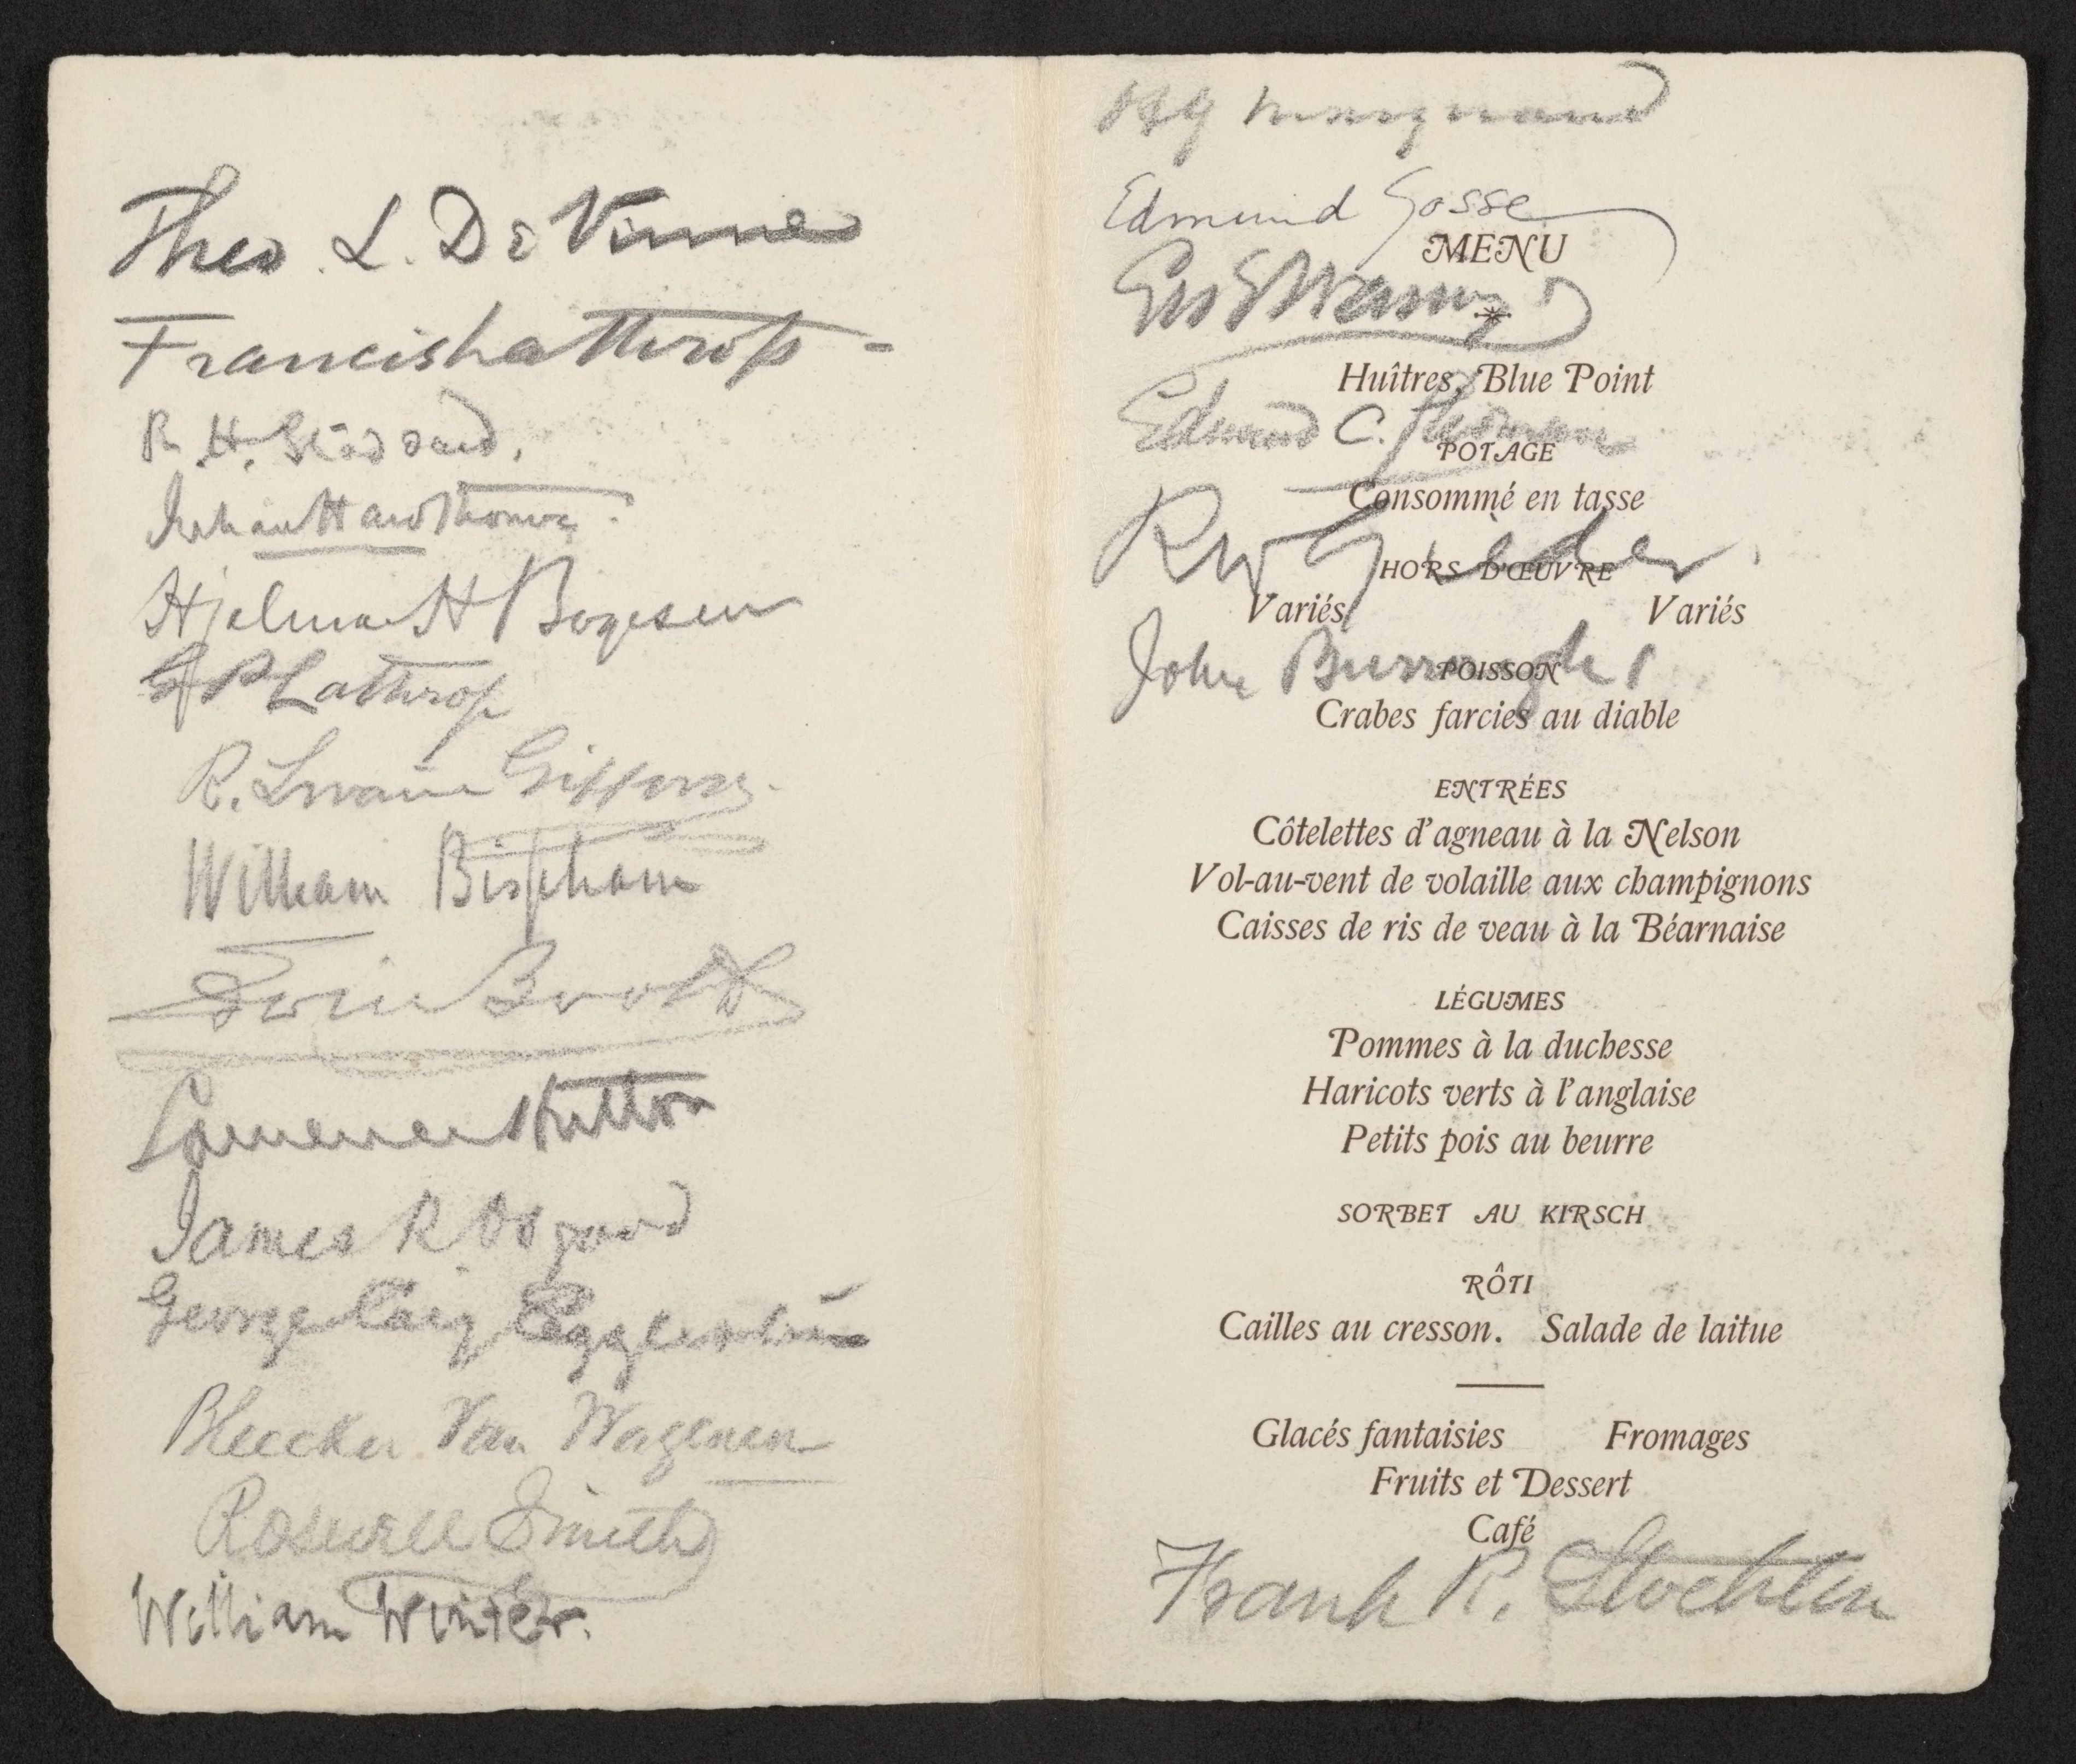 Theo. L. De Vinne
Francis Lathrop -
R. H. Stoddard.
Julian Hawthorne.
Hjalmar H Boyesen
G P Lathrop
R. Swain Gifford
William Bispham
Edwin Booth
Laurence Hutton
James R Osgood
George Cary Eggleston
Bleecker Van Wagenen
Roswell Smith
William Winter.
H G Marquand
Edmund Gosse
MENU
Huîtres, Blue Point
Edmund C. Stedman
POTAGE
Consommé en tasse
R W Gilder.
HORS D'ŒUVRE
Variés Variés
John Burroughs
POISSON
Crabes farcies au diable
ENTRÉES
Côtelettes d'agneau à la Nelson
Vol-au-vent de volaille aux champignons
Caisses de ris de veau à la Béarnaise
LÉGUMES
Pommes à la duchesse
Haricots verts à l'anglaise
Petits pois au beurre
SORBET AU KIRSCH
RÔTI
Cailles au cresson. Salade de laitue
Glacés fantaisies Fromages
Fruits et Dessert
Café
Frank R. Stockton